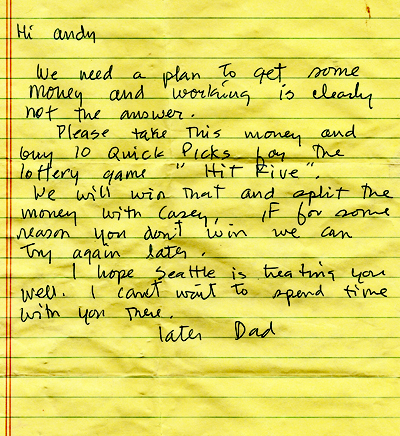 Hi andy
We need a plan to get some
money and working is clearly
not the answer.
Please take this money and
buy 10 Quick Picks for the
lottery game "Hit Five".
We will win that and split the
money with Casey, if for some
reason you don't win we can
try again later.
I hope Seattle is treating you
well. I can't wait to spend time
with you there.
later Dad